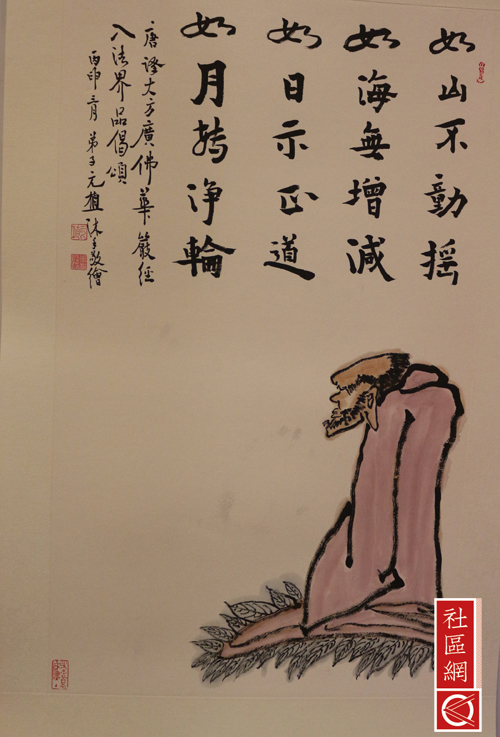 如山不動搖
如海無增減
如日示正道
如月轉淨輪
唐譯大方廣佛華嚴經
入法界品偈頌
丙申三月 弟子元植沐手敬繪
社區網